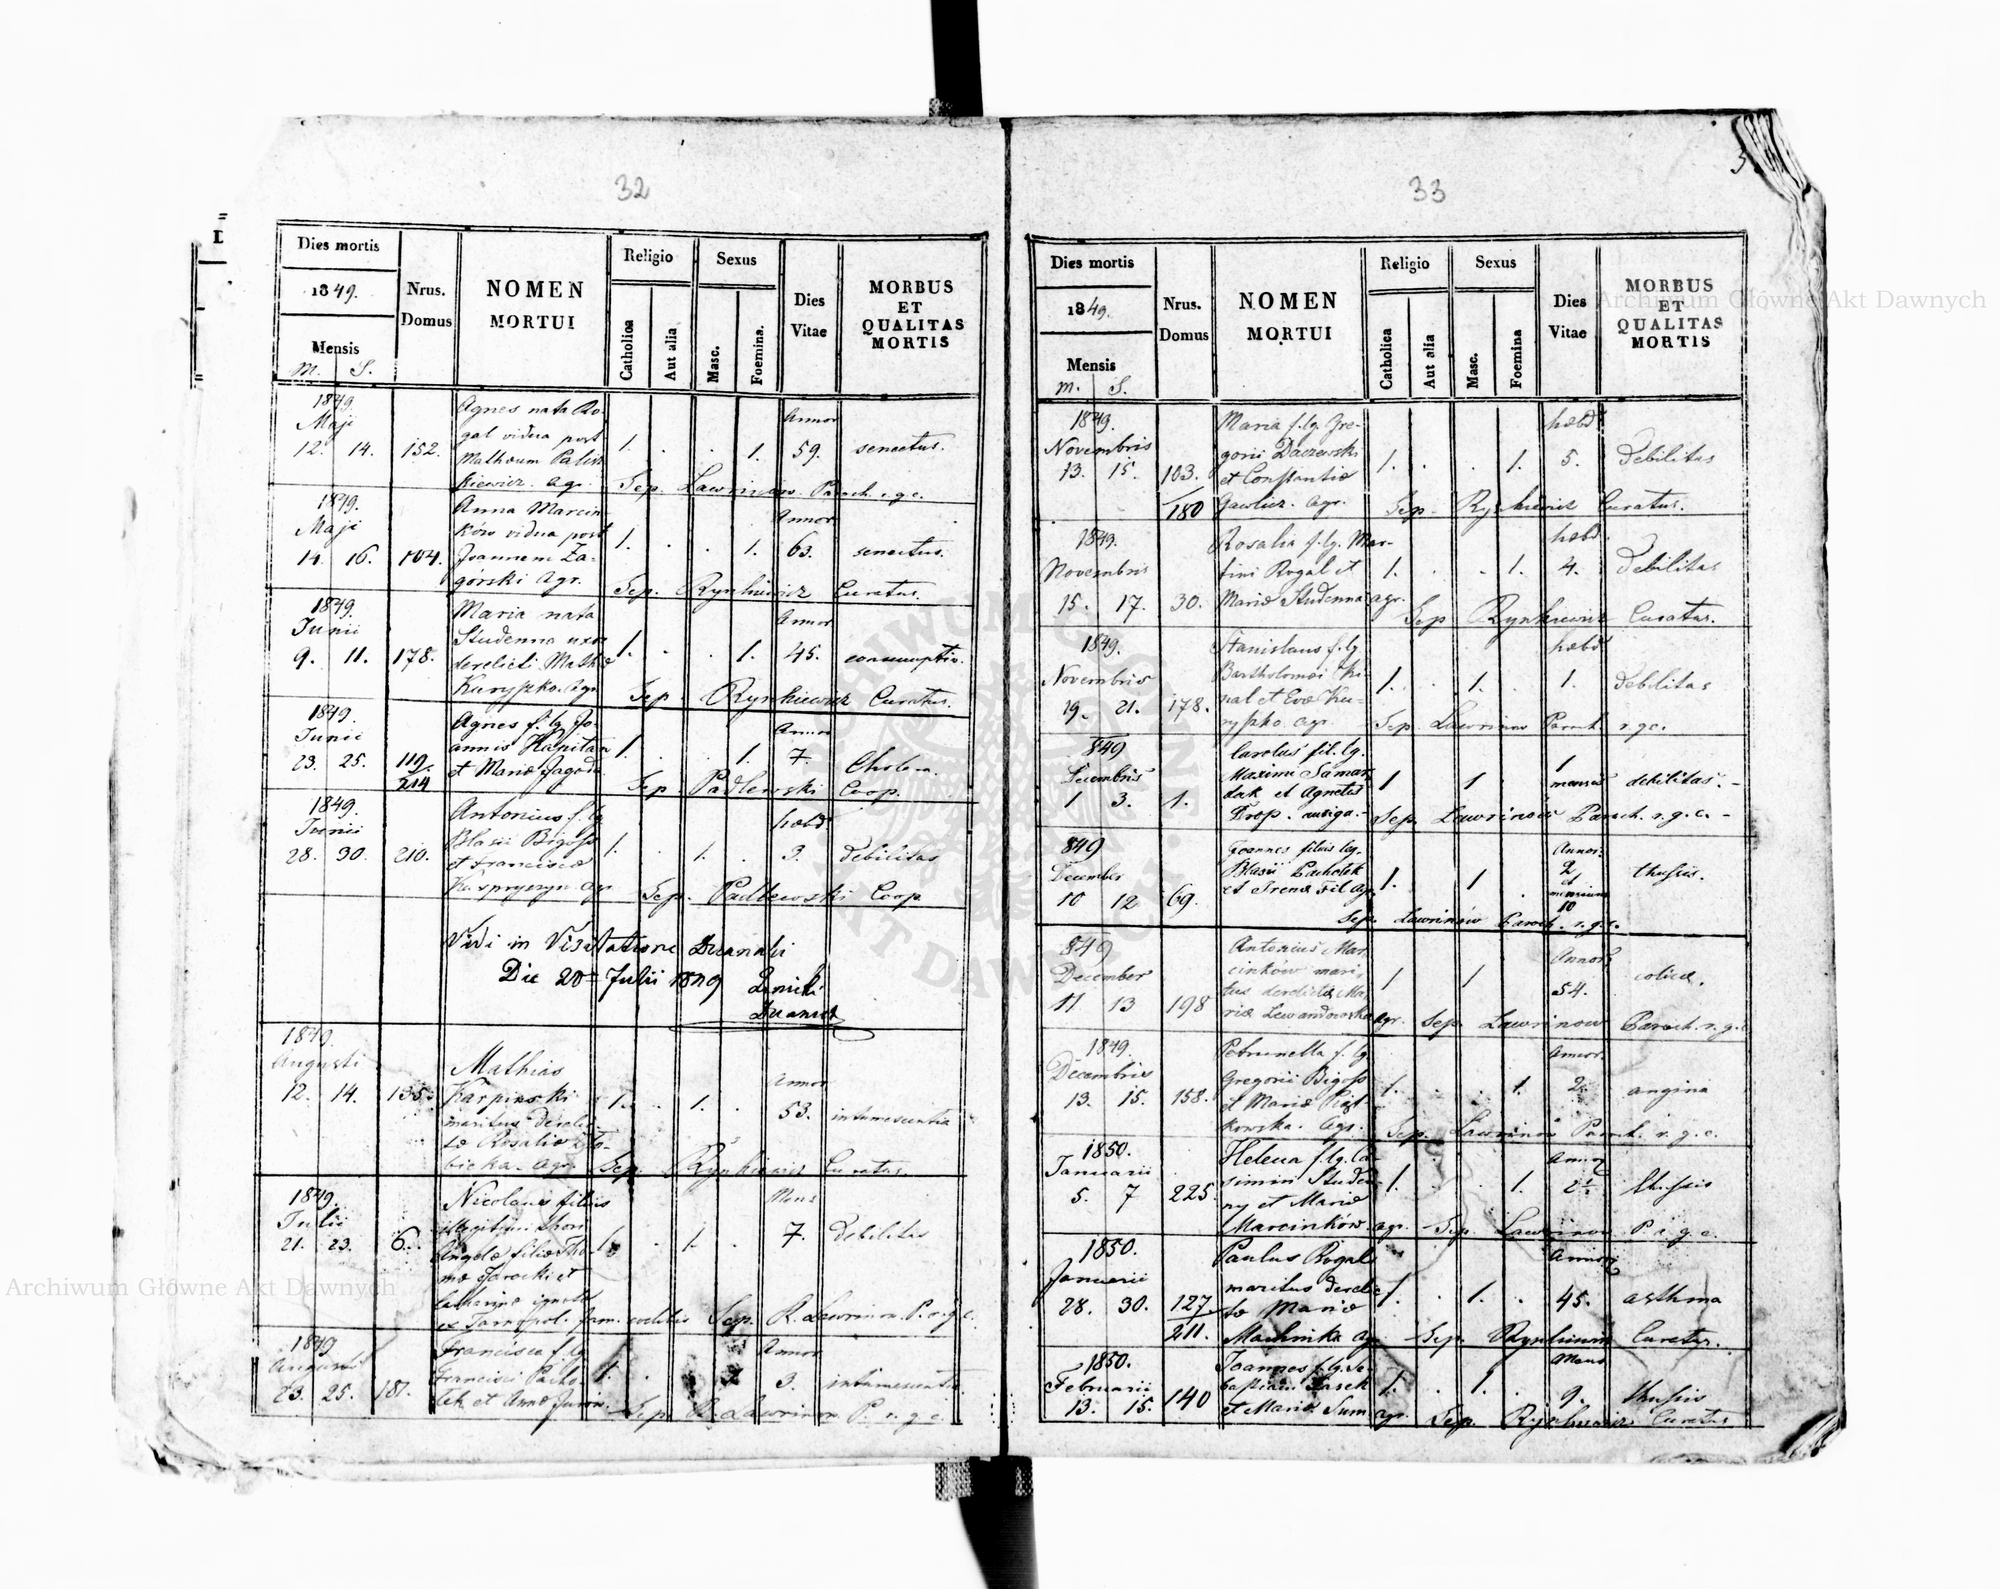 32
Dies mortis
Nrus. Domus
NOMEN MORTUI
Religio
Sexus
Dies Vitae
MORBUS ET QUALITAS MORTIS
1849.
Mensis
m. S.
Catholica
Aut alia
Masc.
Foemina.
1849.
Maji
12. 14. 152.
Agnes nata Ro-
gal vidua post
Mathaeum Palus
kiewicz. agr.
1. . . 1.
Annor
59.
senectus.
Sep. Lawrinow. Paroch. r. g. c.
1849.
Maji
14. 16. 104.
Anna Marcin
ków vidua post
Joannem Za-
górski agr.
1. . . 1.
Annor
63.
senectus.
Sep. Rynkiewicz Curatus.
1849.
Junii
9. 11. 178.
Maria nata
Studenna uxor
derelicti Mathæ
Kurypko. Agr
1. . . 1.
Annor
45.
consumptio.
Sep. Rynkiewicz Curatus.
1849.
Junii
23. 25. 119.
214
Agnes f. lg. Jo-
annis Kapitan
et Mariæ Jagoda
1. . . 1.
Annor
7.
Cholera.
Sep. Padlewski Coop.
1849.
Junii
28. 30. 210.
Antonius f. lg
Blasii Bigoss
et Franciscæ
Kaspryszyn agr
1. . 1. .
hæbd
3.
debilitas
Sep. Padlewski Coop.
Vidi in Visitatione Decanali
Die 20 Julii 1849
Decanus
1849.
Augusti
12. 14. 135.
Mathias
Karpinski
maritus derelic-
tæ Rosaliæ
agr.
1. . 1. .
Annor
53.
intumescentia
Sep. Rynkiewicz Curatus.
1849.
Julii
21. 23. 6.
Nicolaus filius
illegitimi thori
Angelæ filiæ Tho-
mæ Jarocki et
Catharinæ
ex Tarnopol. fam.
1. . 1. .
Mens
7.
debilitas
Sep. R. Lawrinow. P. r. g. c.
1849
Augusti
23. 25. 181.
Francisca f. lg
Francisci Pacho-
lek et Annæ
1.
Annor
3.
intumescentia
Sep. R. Lawrinow P. r. g. c.
33
Dies mortis
Nrus. Domus
NOMEN MORTUI
Religio
Sexus
Dies Vitae
MORBUS ET QUALITAS MORTIS
1849.
Mensis
m. S.
Catholica
Aut alia
Masc.
Foemina
1849.
Novembris
13. 15. 103.
180
Maria f. lg. Gre-
gorii Daczewski
et Constantiæ
Gawlicz. agr.
1. . . 1.
hæbd
5.
debilitas
Sep. Rynkiewicz Curatus.
1849.
Novembris
15. 17. 30.
Rosalia f. lg. Mar-
tini Rogal et
Mariæ Studenna agr.
1. . . 1.
hæbd.
4.
debilitas
Sep Rynkiewicz Curatus.
1849.
Novembris
19. 21. 178.
Stanislaus f. lg.
Bartholomæi Ki-
nal et Evæ Ku-
rypko. agr.
1. . 1. .
hæbd
1.
debilitas
Sep Lawrinow Paroch. r g c.
849
Decembris
1 3. 1.
Carolus fil. lg.
Maximi Samar
dak et Agnetis
Drop. auriga.
1 1
1
mensis
debilitas. -
Sep. Lawrinów Paroch. r. g. c. -
849
December
10 12 69.
Joannes filius lg.
Blasii Pacholek
et Irenæ Fil agr.
1. 1
Annor.
2
et
mensium
10
thussis.
Sep. Lawrinów Paroch. r. g. c.
849
December
11 13 198
Antonius Mar
cinków mari-
tus derelictæ Ma-
riæ Lewandowska agr.
1 1
Annor.
54.
colica.
Sep. Lawrinow Paroch. r. g. c
1849.
Decembris
13. 15. 158.
Petrunella f. lg
Gregorii Bigoss
et Mariæ Piąt
kowska. Agr.
1. . . 1.
Annor.
2.
angina
Sep. Lawrinów Paroch. r. g. c.
1850.
Januarii
5. 7 225.
Helena f. lg. Ca-
simiri Studen-
ny et Mariæ
Marcinków. agr.
1. . . 1.
Annor
2½
thussis
Sep. Lawrinow P. r. g. c.
1850.
Januarii
28. 30. 127
211.
Paulus Rogal
maritus derelic
tæ Mariæ
Machinka agr
1. . 1. .
Annor
45.
asthma
Sep. Rynkiewicz Curatus.
1850.
Februarii
13. 15. 140
Joannes f. lg. Se-
bastiani Lasek
et Mariæ Sum agr.
1. . 1. .
Mens
9.
thussis
Sep. Rynkiewicz Curatus
Archiwum Główne Akt Dawnych
Archiwum Główne Akt Dawnych
ARCHIWUM GŁÓWNE AKT DAWNYCH